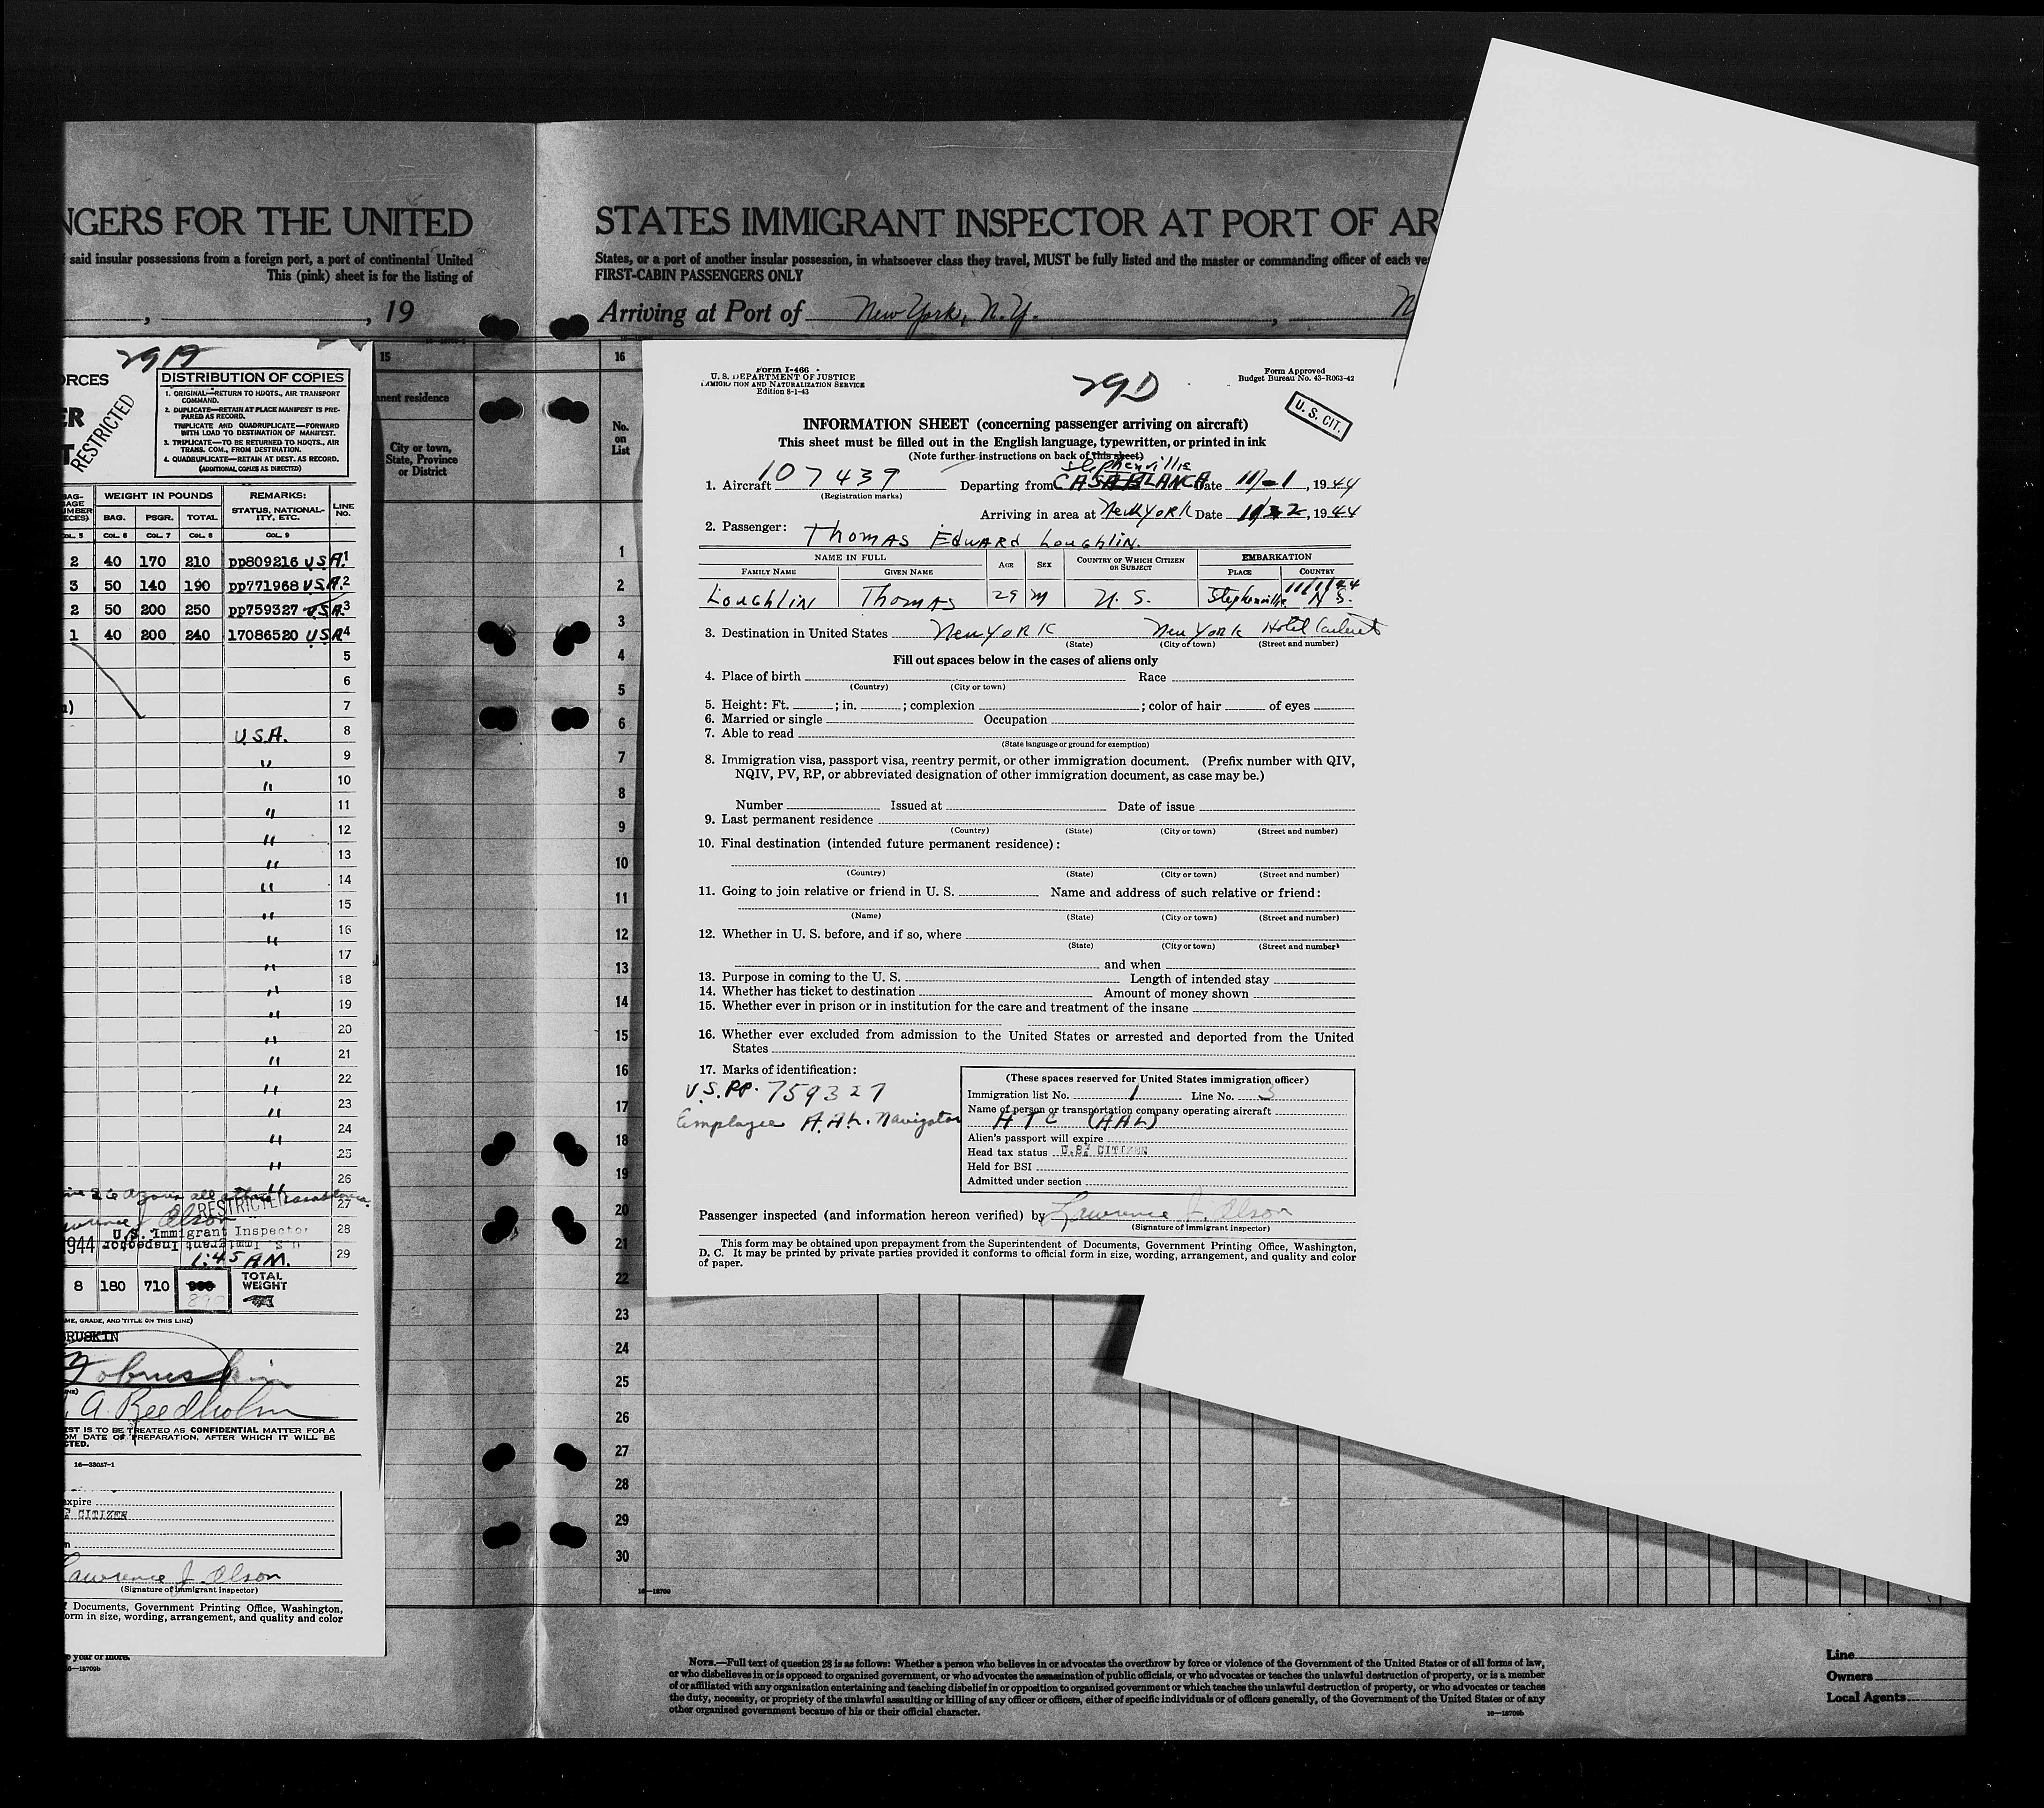 NGERS FOR THE UNITED
said insular possessions from a foreign port, a port of continental United
This (pink) sheet is for the listing of
, , 19
STATES IMMIGRANT INSPECTOR AT PORT OF AR
States, or a port of another insular possession, in whatsoever class they travel, MUST be fully listed and the master or commanding officer of each ves
FIRST-CABIN PASSENGERS ONLY
Arriving at Port of New York, N.Y.
29A
ORCES
ER
T
RESTRICTED
DISTRIBUTION OF COPIES
1. ORIGINAL—RETURN TO HDQTS., AIR TRANSPORT
COMMAND.
2. DUPLICATE—RETAIN AT PLACE MANIFEST IS PRE-
PARED AS RECORD.
TRIPLICATE AND QUADRUPLICATE—FORWARD
WITH LOAD TO DESTINATION OF MANIFEST.
3. TRIPLICATE—TO BE RETURNED TO HDQTS., AIR
TRANS. COM., FROM DESTINATION.
4. QUADRUPLICATE—RETAIN AT DEST. AS RECORD.
(ADDITIONAL COPIES AS DIRECTED)
BAG-
GAGE
UMBER
ECES)
WEIGHT IN POUNDS
REMARKS:
STATUS, NATIONAL-
ITY, ETC.
LINE
NO.
BAG. PSGR. TOTAL
COL. 5 COL. 6 COL. 7 COL. 8 COL. 9
2 40 170 210 pp809216 U.S.A. 1
3 50 140 190 pp771968 U.S.A. 2
2 50 200 250 pp759327 U.S.A. 3
1 40 200 240 17086520 U.S.A. 4
5
6
7
U.S.A. 8
" 9
" 10
" 11
" 12
" 13
" 14
" 15
" 16
" 17
" 18
" 19
" 20
" 21
" 22
" 23
" 24
" 25
" 26
all Casablanca
RESTRICTED 27
Olson
U.S. Immigrant Inspector 28
1944 U.S. Immigrant Inspector
1:45 AM. 29
8 180 710 TOTAL
WEIGHT
ME, GRADE, AND TITLE ON THIS LINE)
BRUSKIN
A. Reedholm
EST IS TO BE TREATED AS CONFIDENTIAL MATTER FOR A
OM DATE OF PREPARATION, AFTER WHICH IT WILL BE
CTED.
16—33057-1
expire
CITIZEN
n
Lawrence J. Olson
(Signature of immigrant inspector)
Documents, Government Printing Office, Washington,
orm in size, wording, arrangement, and quality and color
e year or more.
16—18709b
15
nent residence
City or town,
State, Province
or District
16
No.
on
List
1
2
3
4
5
6
7
8
9
10
11
12
13
14
15
16
17
18
19
20
21
22
23
24
25
26
27
28
29
30
16—18709
Form I-466
U. S. DEPARTMENT OF JUSTICE
IMMIGRATION AND NATURALIZATION SERVICE
Edition 8-1-43
29D
Form Approved
Budget Bureau No. 43-R063-42
U. S. CIT.
INFORMATION SHEET (concerning passenger arriving on aircraft)
This sheet must be filled out in the English language, typewritten, or printed in ink
(Note further instructions on back of this sheet)
Stephenville
1. Aircraft 107439 Departing from CASABLANCA Date 11-1, 1944
(Registration marks)
Arriving in area at New York Date 11 2, 1944
2. Passenger: Thomas Edward Loughlin.
NAME IN FULL AGE SEX COUNTRY OF WHICH CITIZEN
OR SUBJECT EMBARKATION
FAMILY NAME GIVEN NAME PLACE COUNTRY
11/1/44
Loughlin Thomas 29 M U. S. Stephenville N S.
3. Destination in United States New York New York Hotel
(State) (City or town) (Street and number)
Fill out spaces below in the cases of aliens only
4. Place of birth Race
(Country) (City or town)
5. Height: Ft. ; in. ; complexion ; color of hair of eyes
6. Married or single Occupation
7. Able to read
(State language or ground for exemption)
8. Immigration visa, passport visa, reentry permit, or other immigration document. (Prefix number with QIV,
NQIV, PV, RP, or abbreviated designation of other immigration document, as case may be.)
Number Issued at Date of issue
9. Last permanent residence
(Country) (State) (City or town) (Street and number)
10. Final destination (intended future permanent residence):
(Country) (State) (City or town) (Street and number)
11. Going to join relative or friend in U. S. Name and address of such relative or friend:
(Name) (State) (City or town) (Street and number)
12. Whether in U. S. before, and if so, where
(State) (City or town) (Street and number)
and when
13. Purpose in coming to the U. S. Length of intended stay
14. Whether has ticket to destination Amount of money shown
15. Whether ever in prison or in institution for the care and treatment of the insane
16. Whether ever excluded from admission to the United States or arrested and deported from the United
States
17. Marks of identification:
U.S. PP. 759327
Employee A.A.L. Navigator
(These spaces reserved for United States immigration officer)
Immigration list No. 1 Line No. 3
Name of person or transportation company operating aircraft
ATC (AAL)
Alien's passport will expire
Head tax status U.S. CITIZEN
Held for BSI
Admitted under section
Passenger inspected (and information hereon verified) by Lawrence J. Olson
(Signature of immigrant inspector)
This form may be obtained upon prepayment from the Superintendent of Documents, Government Printing Office, Washington,
D. C. It may be printed by private parties provided it conforms to official form in size, wording, arrangement, and quality and color
of paper.
NOTE.—Full text of question 28 is as follows: Whether a person who believes in or advocates the overthrow by force or violence of the Government of the United States or of all forms of law,
or who disbelieves in or is opposed to organized government, or who advocates the assassination of public officials, or who advocates or teaches the unlawful destruction of property, or is a member
of or affiliated with any organization entertaining and teaching disbelief in or opposition to organized government or which teaches the unlawful destruction of property, or who advocates or teaches
the duty, necessity, or propriety of the unlawful assaulting or killing of any officer or officers, either of specific individuals or of officers generally, of the Government of the United States or of any
other organized government because of his or their official character.
16—18709b
Line
Owners
Local Agents